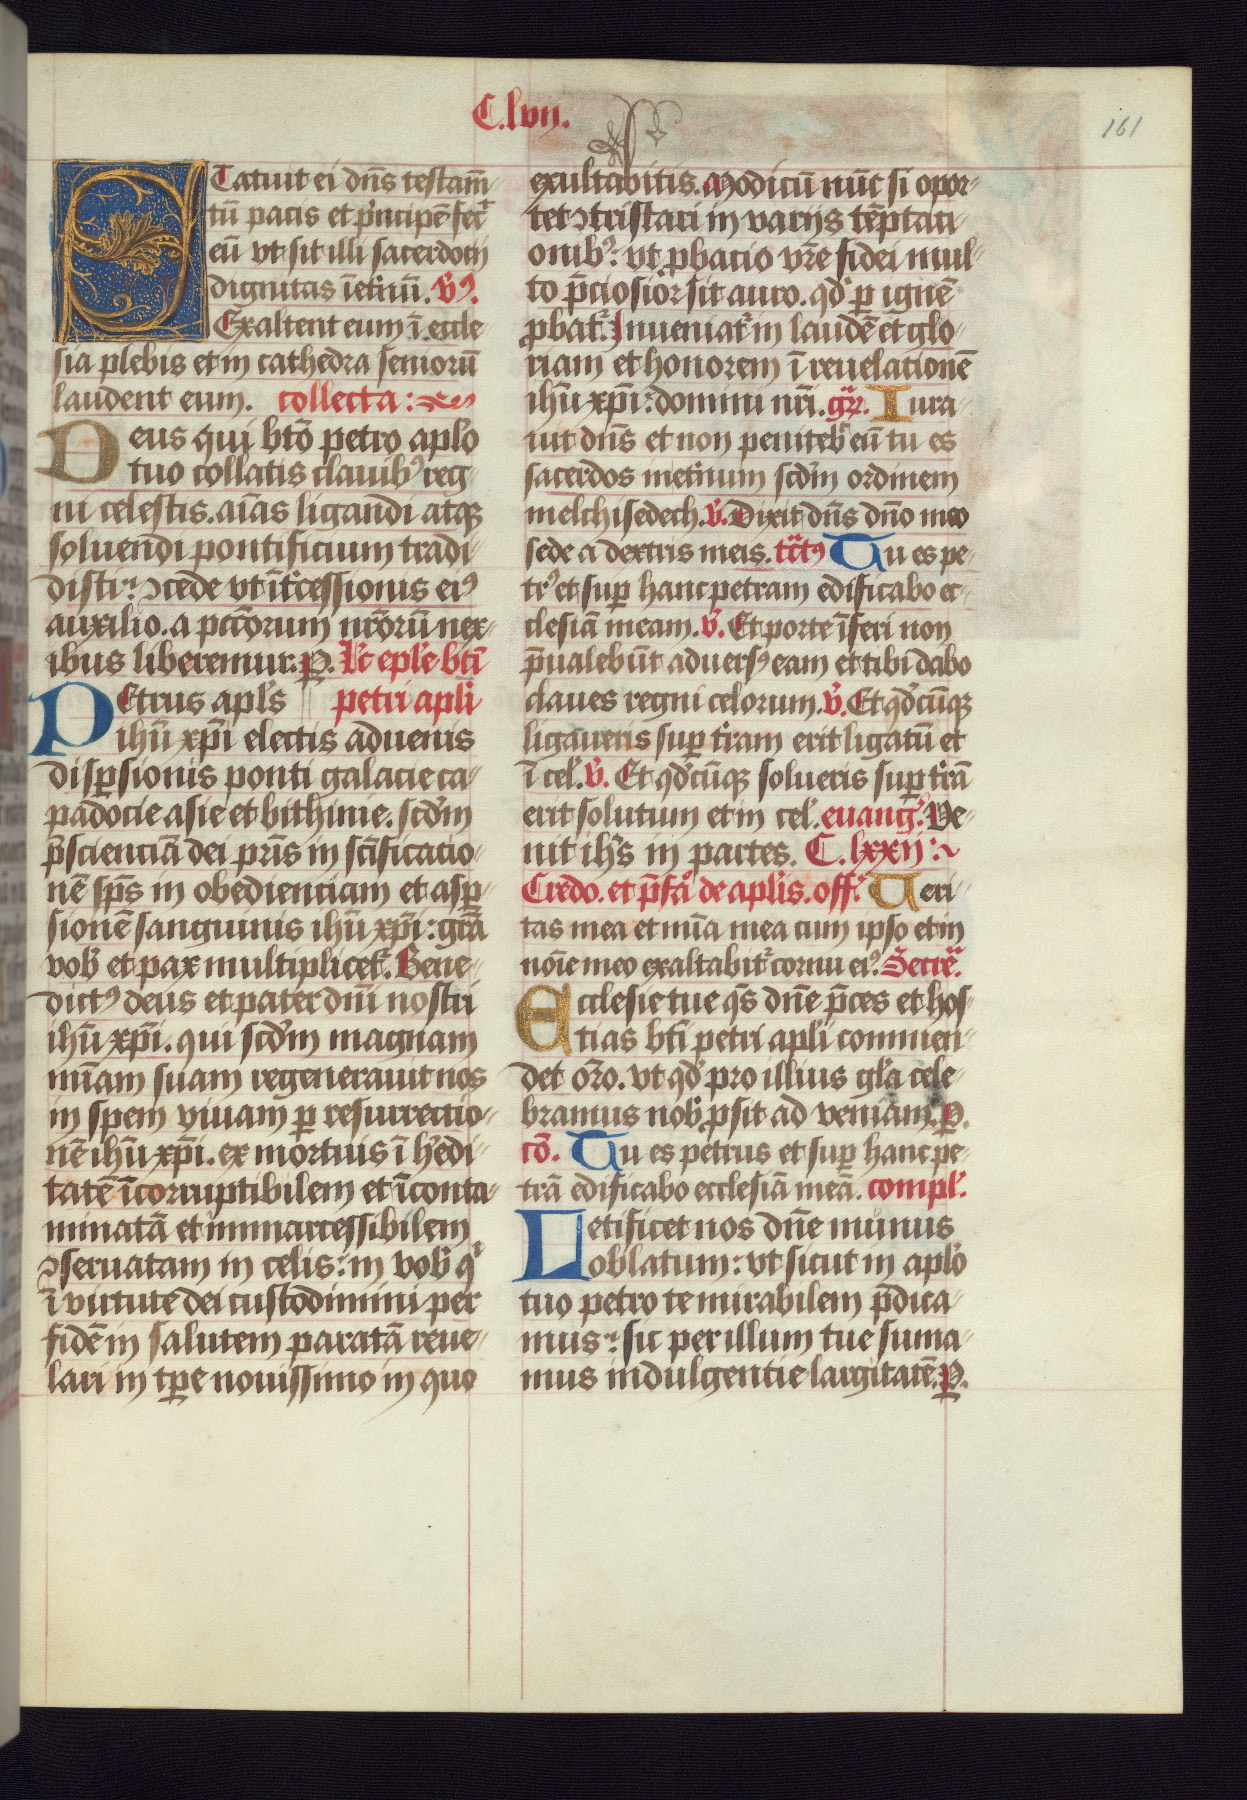 C. lvii.
161
STatuit ei dn̄s testam̄-
tū pacis et pͥncipē fecͭ
eū vt sit illi sacerdotij
dignitas īetͥnū. v̄ꝰ.
Exaltent eum ī eccle
sia plebis et in cathedra senioꝝ
laudent eum. collecta:
Deus qui bt̄o petro aplo
tuo collatis clauibꝰ reg-
ni celestis. aīas ligandi atqꝫ
soluendi pontificium tradi-
disti: ꝯcede vt īt̾cessionis eiꝰ
auxilio. a pctōrum nr̄orū nex-
ibus liberemur. P̲. Lc̄ ep̄le bt̄i
PEtrus apl̄s petri apl̄i
ihū xp̄i electis aduenis
disp̱sionis ponti galacie ca-
padocie asie et bithinie. scd̄m
p̄scienciā dei pr̄is in sc̄ificatio-
nē sp̄s in obedienciam et asp̱-
sionē sanguinis ihū xp̄i: gr̄a
vob̄ et pax multiplicet̾. Bene-
dictꝰ deus et pater dn̄i nostri
ihū xp̄i. qui scd̄m magnam
mīam suam regenerauit nos
in spem viuam ꝑ resurrectio-
nē ihū xp̄i. ex mortuis ī h̾edi-
tatē īcorruptibilem et īconta-
minatā et inmarcessibilem
ꝯseruatam in celis: in vob̄ qͥ
ī virtute dei custodimini per
fidē in salutem paratā reue-
lari in tp̄e nouissimo in quo
exultabitis. Modicū nūc si opor-
tet ꝯtristari in varijs tēptaci-
onibꝰ: vt ꝓbacio vr̄e fidei mul-
to p̄ciosior sit auro. qd̄ ꝑ ignē
ꝓbat̾. Inueniat̾ in laudē et glo-
riam et honorem ī reuelationē
ihū xp̄i: domini nr̄i. gr̄. Iura-
uit dn̄s et non penitebͭ eū tu es
sacerdos inet̾num scd̄m ordinem
melchisedech. v̄. Dixit dn̄s dn̄o meo
sede a dextris meis. tc̄tꝰ Tu es pe-
trꝰ et suꝑ hanc petram edificabo ec-
clesiā meam. v̄. Et porte īferi non
p̄ualebūt aduersꝰ eam et tibi dabo
claues regni celorum. v̄. Et qd̄cūqꝫ
ligaueris suꝑ t̾ram erit ligatū et
ī cel̾. v̄. Et qd̄cūqꝫ solueris suꝑ t̾rā
erit solutum et in cel̾. euang̾. Ve-
nit ihs̄ in partes. C. lxxij:
Credo. et p̄fāo de apl̄is. off̾. Veri-
tas mea et mīa mea cum ipso et in
noīe meo exaltabit̾ cornu eiꝰ. Secreͣ.
Ecclesie tue qs̄ dn̄e p̄ces et hos-
tias bt̄i petri apl̄i commen-
det or̄o. vt qd̄ pro illius gl̄a cele-
bramus nob̄ ꝓsit ad veniam. P̲.
cō. Tu es petrus et suꝑ hanc pe-
trā edificabo ecclesiā meā. compl̾.
Letificet nos dn̄e munus
oblatum: vt sicut in aplo
tuo petro te mirabilem p̄dica-
mus: sic per illum tue suma-
mus indulgentie largitatē. P̲.